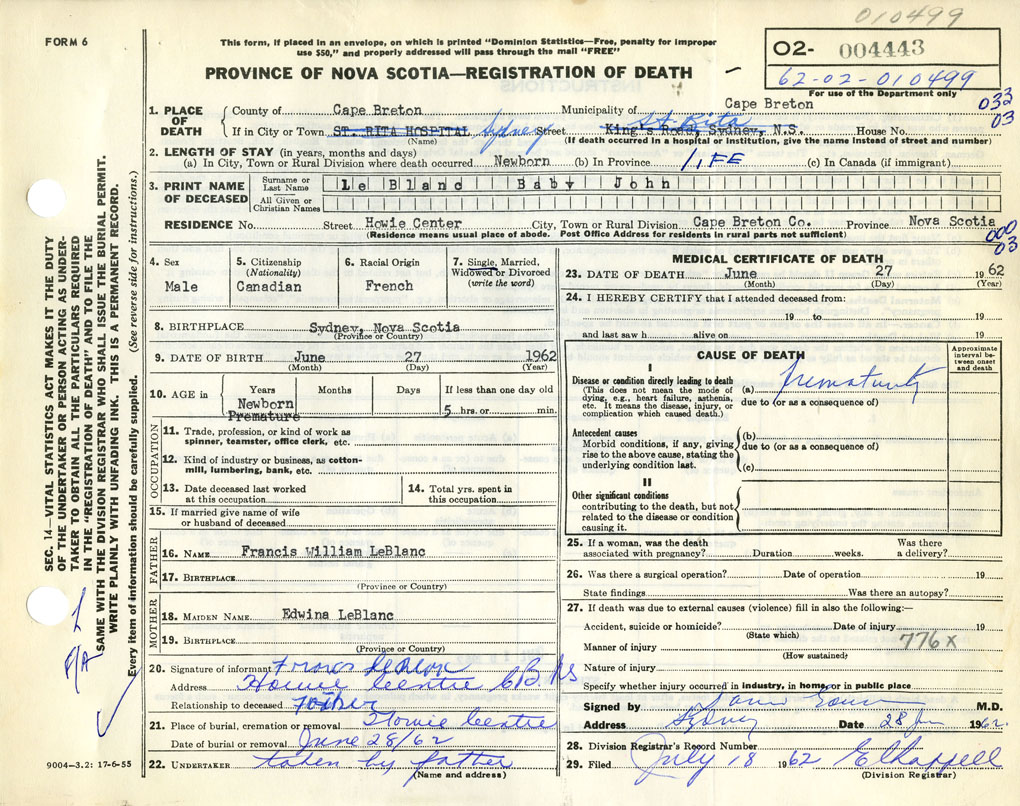 010499
FORM 6
This form, if placed in an envelope, on which is printed "Dominion Statistics—Free, penalty for improper
use $50," and properly addressed will pass through the mail "FREE"
PROVINCE OF NOVA SCOTIA—REGISTRATION OF DEATH
02- 004443
62-02-010499
For use of the Department only
033
03
1. PLACE OF DEATH
County of Cape Breton Municipality of Cape Breton
St. Rita
If in City or Town ST. RITA HOSPITAL, Sydney Street King's Road, Sydney, N.S. House No.
(Name) (If death occurred in a hospital or institution, give the name instead of street and number)
2. LENGTH OF STAY (in years, months and days)
(a) In City, Town or Rural Division where death occurred Newborn (b) In Province LIFE (c) In Canada (if immigrant)
3. PRINT NAME OF DECEASED
Surname or Last Name Le Bland Baby John
All Given or Christian Names
RESIDENCE No. Street Howie Center City, Town or Rural Division Cape Breton Co. Province Nova Scotia
(Residence means usual place of abode. Post Office Address for residents in rural parts not sufficient)
000
03
4. Sex
Male
5. Citizenship
(Nationality)
Canadian
6. Racial Origin
French
7. Single, Married,
Widowed or Divorced
(write the word)
8. BIRTHPLACE Sydney, Nova Scotia
(Province or Country)
9. DATE OF BIRTH June 27 1962
(Month) (Day) (Year)
10. AGE in
Years Months Days If less than one day old
Newborn
Premature
5 hrs. or min.
OCCUPATION
11. Trade, profession, or kind of work as
spinner, teamster, office clerk, etc.
12. Kind of industry or business, as cotton-
mill, lumbering, bank, etc.
13. Date deceased last worked
at this occupation
14. Total yrs. spent in
this occupation
15. If married give name of wife
or husband of deceased
FATHER
16. NAME Francis William LeBlanc
17. BIRTHPLACE
(Province or Country)
MOTHER
18. MAIDEN NAME Edwina LeBlanc
19. BIRTHPLACE
(Province or Country)
20. Signature of informant
Address Howie Centre C.B. NS
Relationship to deceased Father
21. Place of burial, cremation or removal Howie Centre
Date of burial or removal June 28/62
22. UNDERTAKER taken by father
(Name and address)
MEDICAL CERTIFICATE OF DEATH
23. DATE OF DEATH June 27 1962
(Month) (Day) (Year)
24. I HEREBY CERTIFY that I attended deceased from:
19 to 19
and last saw h alive on 19
CAUSE OF DEATH
Approximate
interval be-
tween onset
and death
I
Disease or condition directly leading to death
(This does not mean the mode of
dying, e.g., heart failure, asthenia,
etc. It means the disease, injury, or
complication which caused death.)
(a) Prematurity
due to (or as a consequence of)
Antecedent causes
Morbid conditions, if any, giving
rise to the above cause, stating the
underlying condition last.
(b)
due to (or as a consequence of)
(c)
II
Other significant conditions
contributing to the death, but not
related to the disease or condition
causing it.
25. If a woman, was the death Was there
associated with pregnancy? Duration weeks. a delivery?
26. Was there a surgical operation? Date of operation 19
State findings Was there an autopsy?
27. If death was due to external causes (violence) fill in also the following:—
Accident, suicide or homicide? Date of injury 19
(State which)
776X
Manner of injury
(How sustained)
Nature of injury
Specify whether injury occurred in industry, in home, or in public place
Signed by M.D.
Address Sydney Date 28 Jun 1962
28. Division Registrar's Record Number
29. Filed July 18 1962 E Chappell
(Division Registrar)
SEC. 14—VITAL STATISTICS ACT MAKES IT THE DUTY
OF THE UNDERTAKER OR PERSON ACTING AS UNDER-
TAKER TO OBTAIN ALL THE PARTICULARS REQUIRED
IN THE "REGISTRATION OF DEATH" AND TO FILE THE
SAME WITH THE DIVISION REGISTRAR WHO SHALL ISSUE THE BURIAL PERMIT.
WRITE PLAINLY WITH UNFADING INK. THIS IS A PERMANENT RECORD.
Every item of information should be carefully supplied. (See reverse side for instructions.)
F/A
9004—3.2: 17-6-55